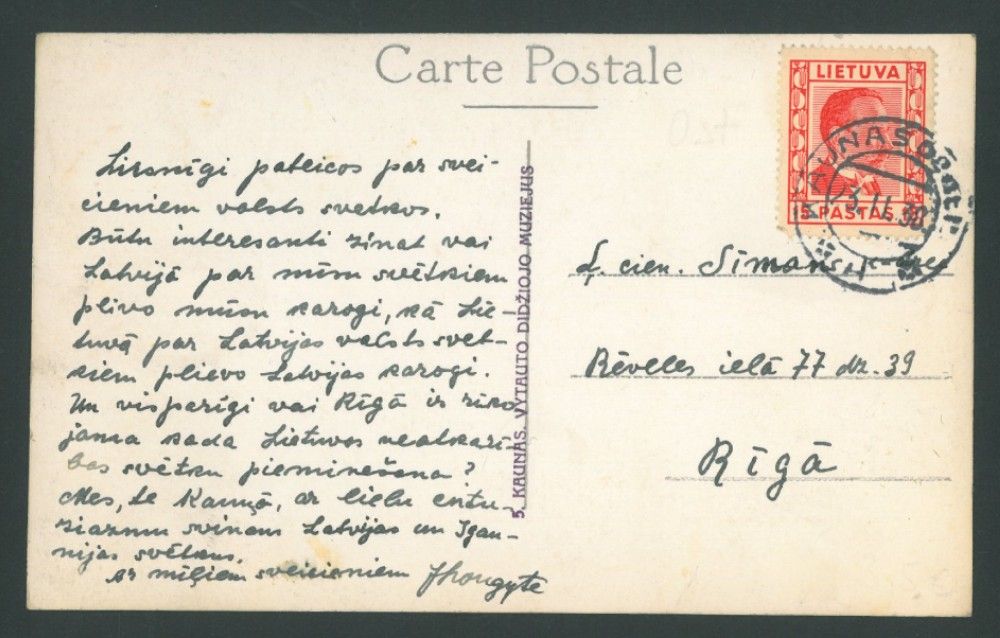 Carte Postale
LIETUVA
15 PASTAS
KAUNAS
Sirsnīgi pateicos par svei-
cieniem valsts svētkos.
Būtu interesanti zinat vai
Latvijā par mūsu svētkiem
plivo mūsu karogi, kā Lie-
tuvā par Latvijas valsts svēt-
kiem plievo Latvijas karogi.
Un visparīgi vai Rīgā ir rīko
jama kada Lietuvos neatkarī-
bas svētku pieminešana?
Mes, te Kauņā, ar lielu entu-
ziazmu svinam Latvijas un Igau-
nijas svētkus.
Ar mīļiem sveicieniem
5. KAUNAS. VYTAUTO DIDŽIOJO MUZIEJUS
Ļ. cien.
Rēveles ielā 77 dz. 39
Rīgā